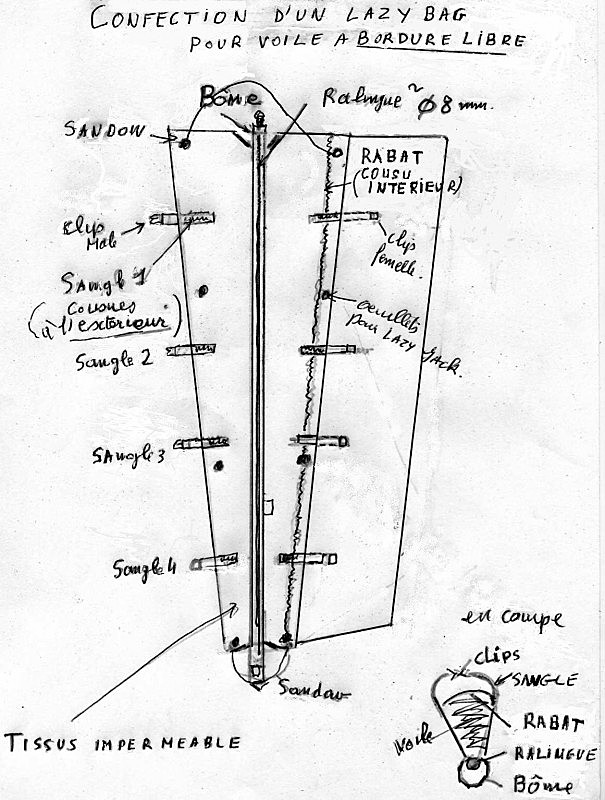 CONFECTION D'UN LAZY BAG
POUR VOILE A BORDURE LIBRE
Bôme
Ralingue ~ Ø 8 mm.
SANDOW
RABAT
(COUSU
INTERIEUR)
Clip
Male
clip
femelle.
Sangle 1
(Cousues
à l'extérieur)
oeuillets
pour LAZY Jack.
Sangle 2
SAngle 3
Sangle 4
en coupe
clips
SANGLE
Sandow
RABAT
Voile
TISSUS IMPERMEABLE
RALINGUE
Bôme